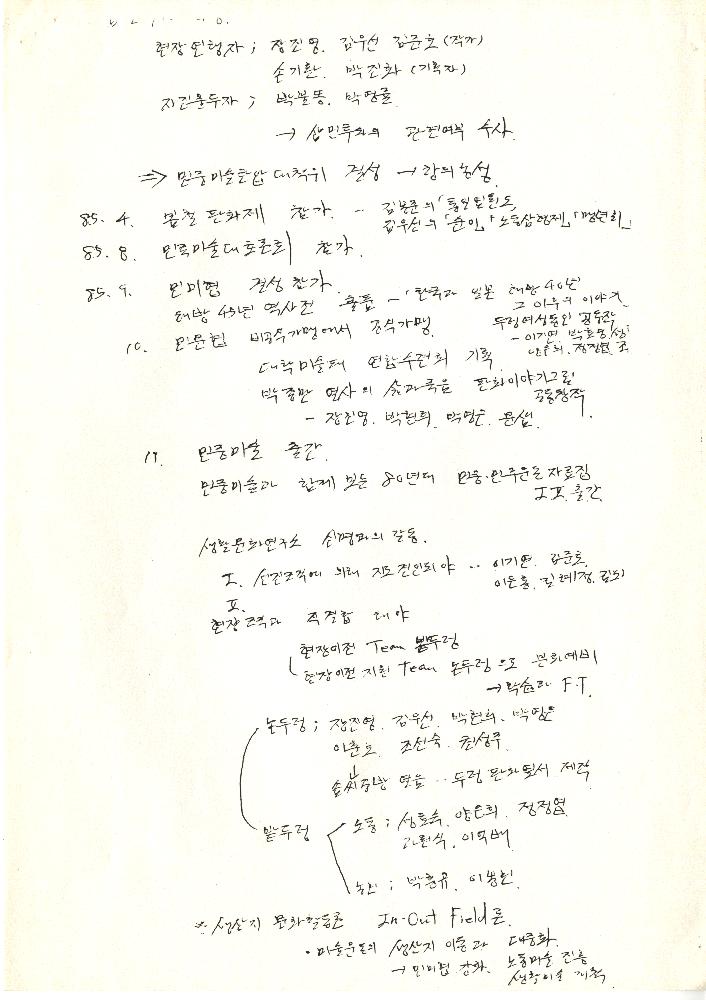 현장 연행자 ; 장진영. 김우선 김준호 (작가)
손기환. 박진화 (기획자)
박불똥. 박영률
→ 삼민투와의 관련여부 수사.
⇒ 민중미술탄압 대책위 결성 → 강의농성
85. 4. 봄철 판화제 참가. -
김우선의 「순이」, 「노동삼형제」,
85. 8. 민족미술대토론회 참가.
85. 9. 민미협 결성 참가.
해방 40년 역사전 출품 - 「한국과 일본 해방 40년
그 이후의 이야기
두렁여성동인 공동작
- 이기연, 박흥순,
10. 민문협 비공식가맹에서 공식가맹.
대학미술패 연합수련회 기획
박종만 열사의 삶과죽음 판화이야기그림
공동창작
- 장진영. 박현희. 박영은.
11. 민중미술 출간.
민중미술과 함께 보는 80년대 민중·민주운동 자료집
I, II. 출간
생활문화연구소 신명과의 갈등.
I. 선진조직에 의해 지도견인되야 .. 이기연. 김준호.
이은홍. 김례정.
II.
현장조직과 직결합 해야
현장이전 Team 밭두렁
현장이전 지원 Team 논두렁으로 분화예비
→ F.T.
논두렁 ; 장진영. 김우선. 박현희. 박영은
이춘호. 조선숙. 최성주.
연습 .. 두렁 판화엽서 제작
밭두렁
노동 ; 성효숙. 양은희. 정정엽
라원식. 이억배
농민 ; 박홍규. 이봉원.
* 생산지 문화활동론 In-Out Field론.
· 미술운동의 생산지 이동과 대중화.
→ 민미협 강화. 노동미술 진흥
생활미술 기획